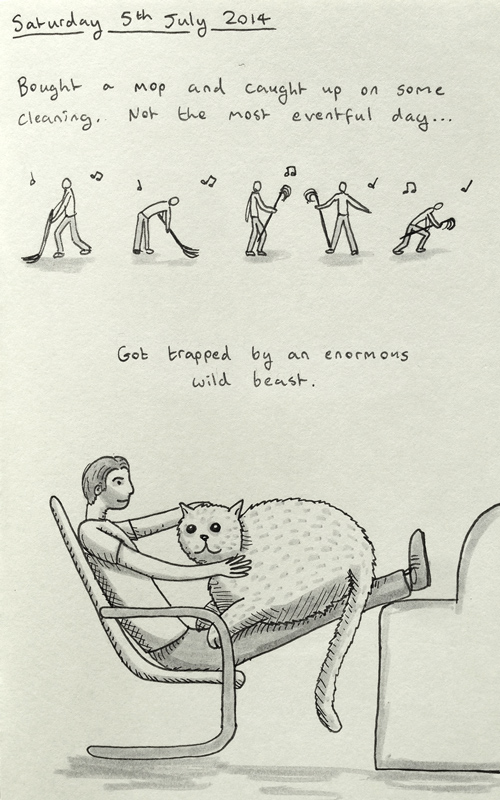 Saturday 5th July 2014
Bought a mop and caught up on some
cleaning. Not the most eventful day...
Got trapped by an enormous
wild beast.